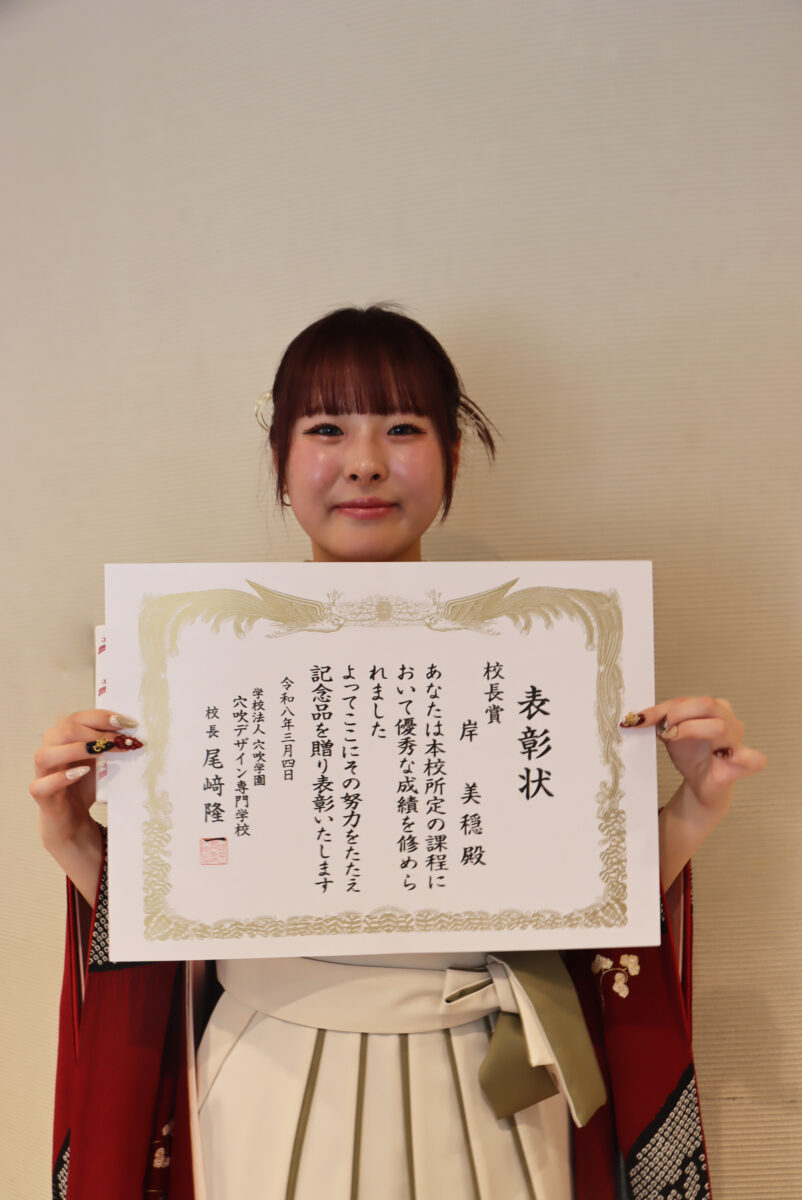 表彰状
校長賞
岸 美穏殿
あなたは本校所定の課程に
おいて優秀な成績を修めら
れました
よってここにその努力をたたえ
記念品を贈り表彰いたします
令和八年三月四日
学校法人 穴吹学園
穴吹デザイン専門学校
校長 尾﨑隆一